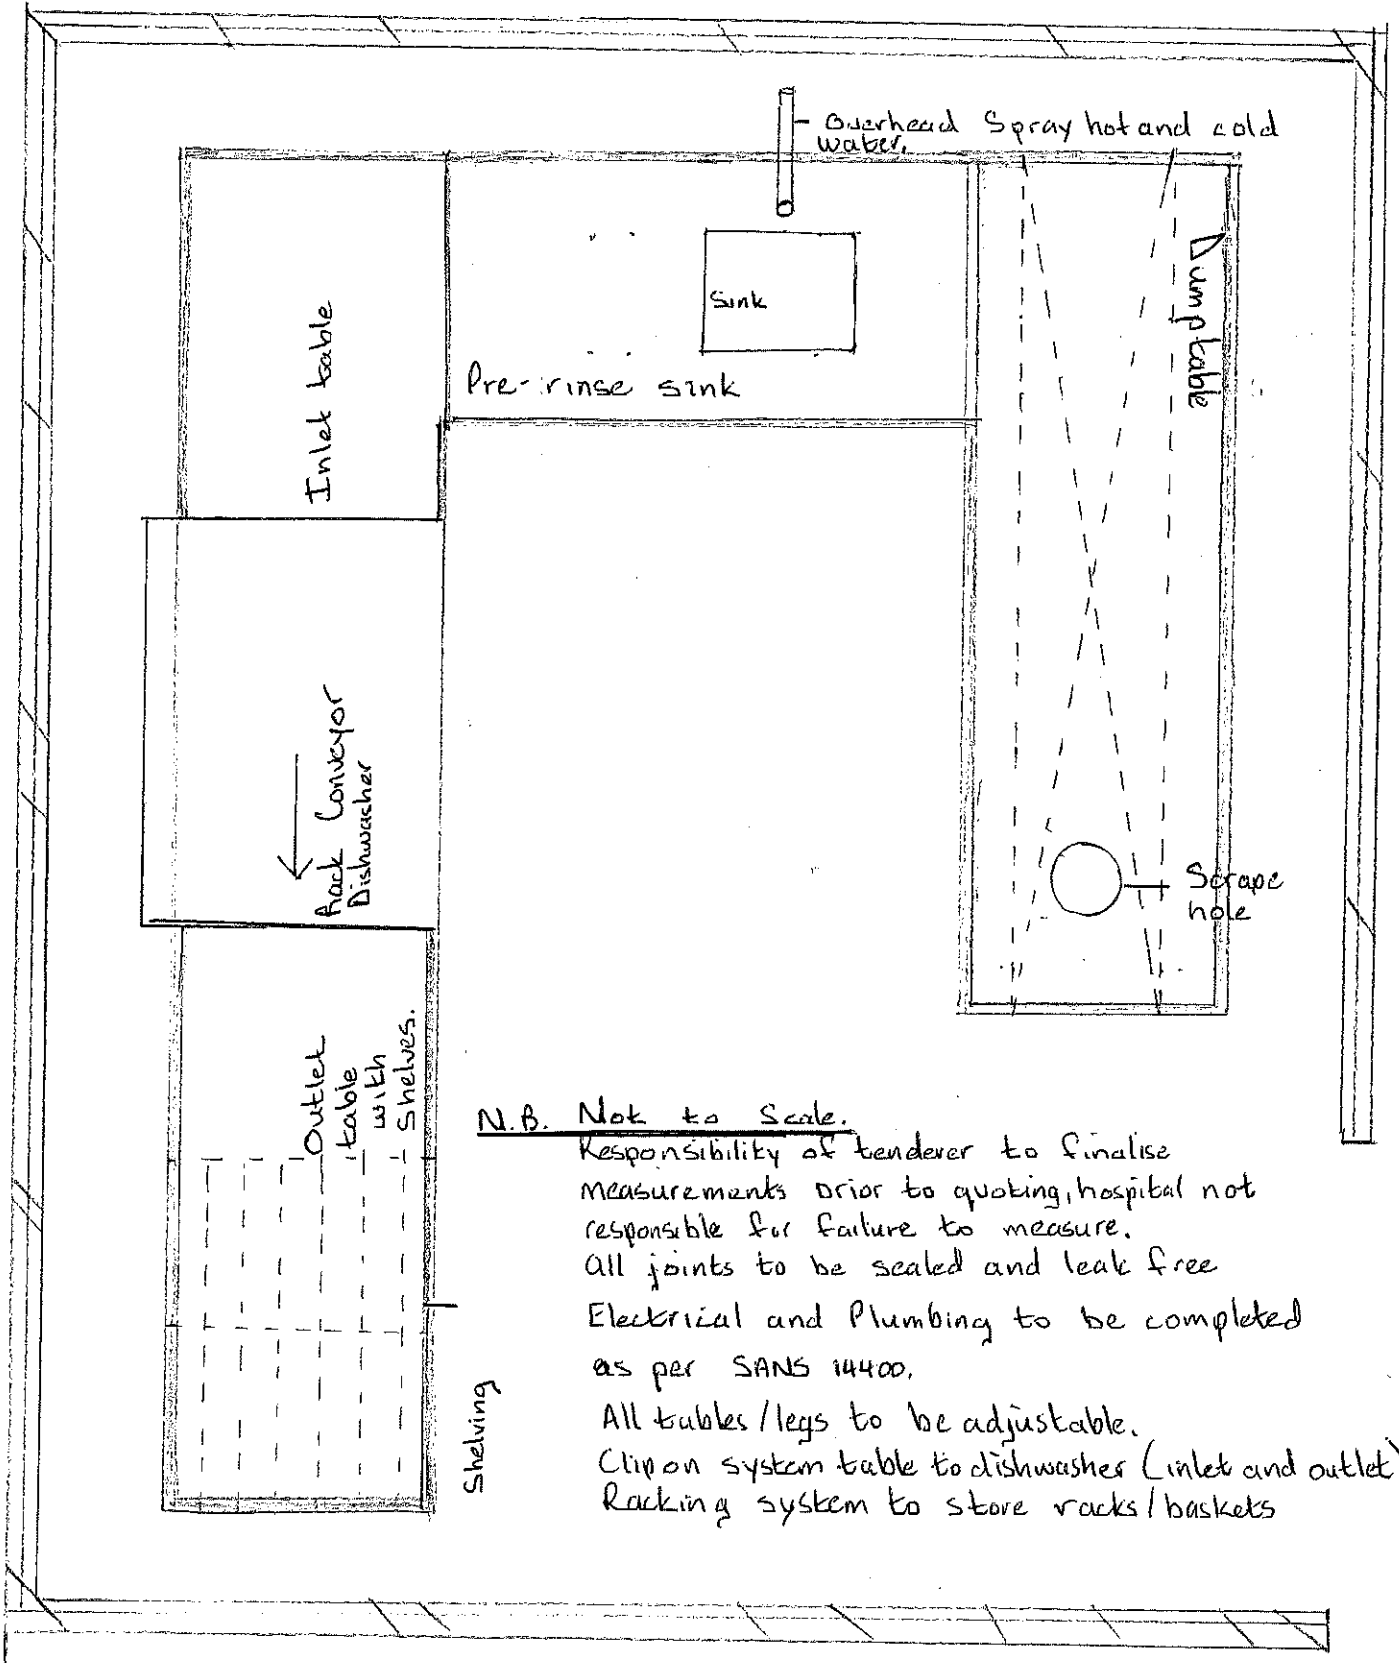 Overhead Spray hot and cold
water.
Sink
Pre-rinse sink
Inlet table
Dump table
Rack Conveyor
Dishwasher
Scrape
hole
Outlet
table
with
Shelves.
Shelving
N.B. Not to Scale.
Responsibility of tenderer to finalise
measurements prior to quoting, hospital not
responsible for failure to measure.
All joints to be sealed and leak free
Electrical and Plumbing to be completed
as per SANS 14400.
All tables/legs to be adjustable.
Clip on system table to dishwasher (inlet and outlet)
Racking system to store racks/baskets